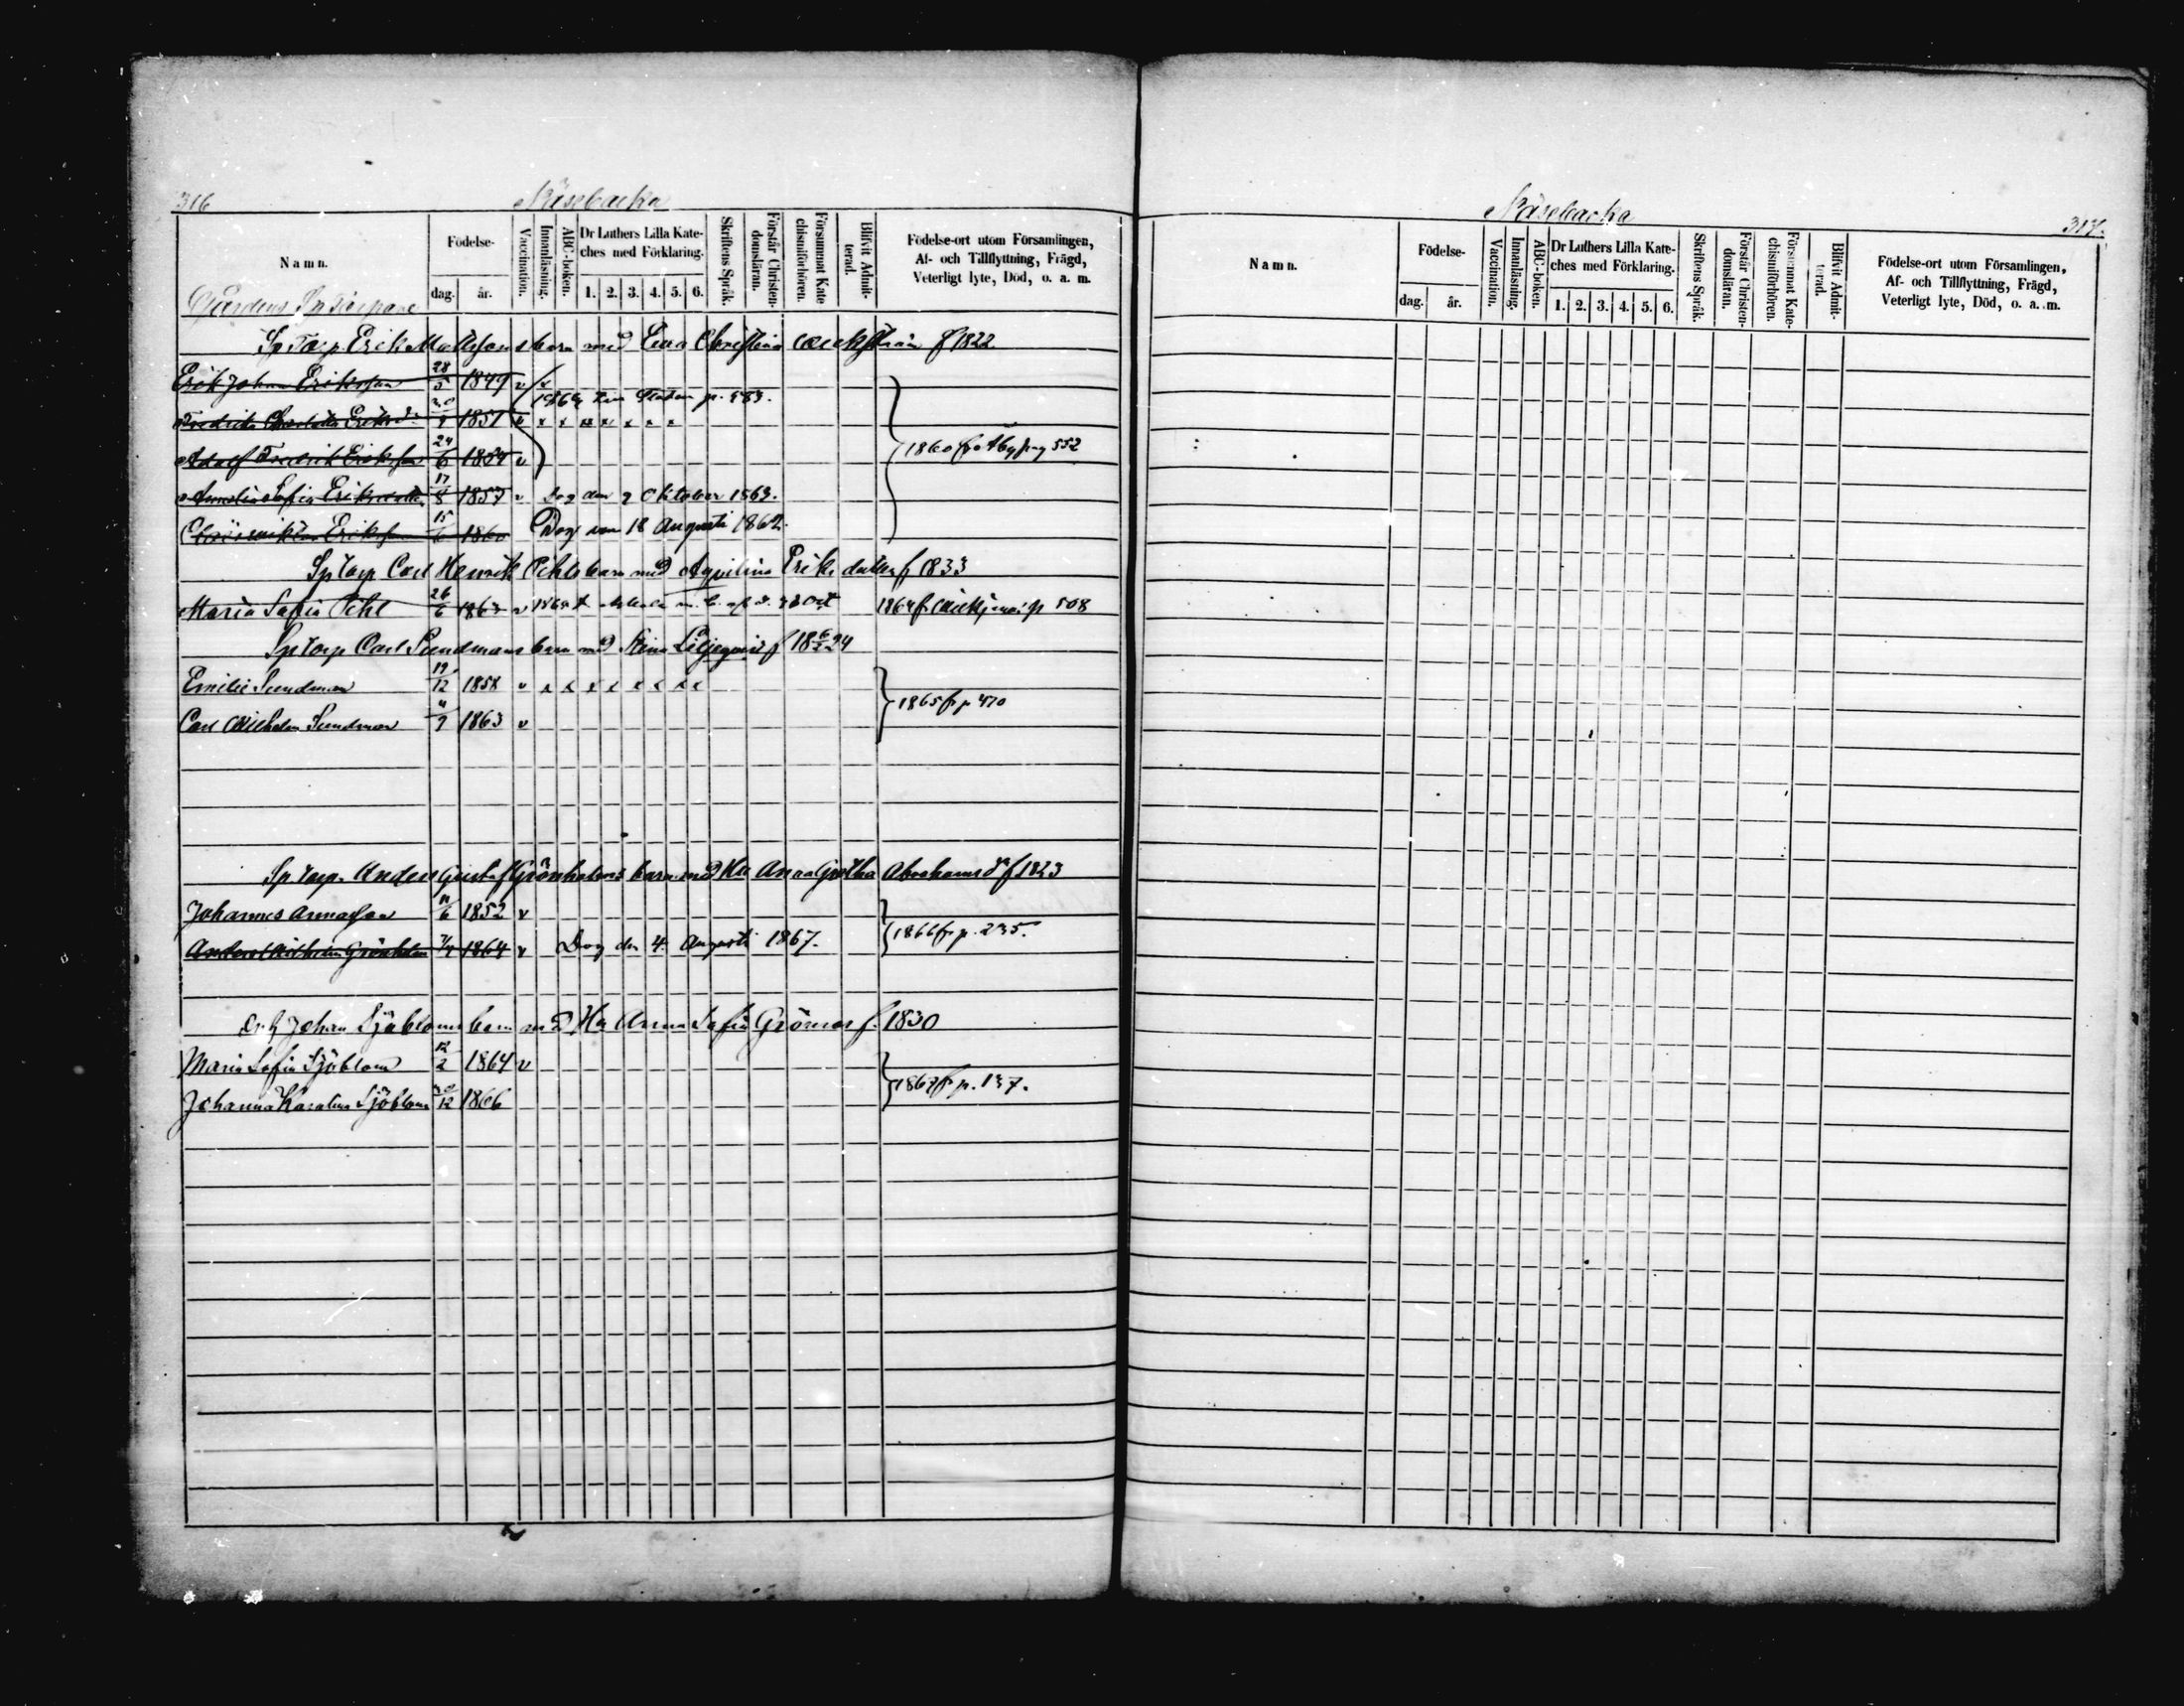 316
Näsebacka
Namn.
Födelse-
dag.
år.
Vaccination.
Innanläsning.
ABC-boken.
Dr Luthers Lilla Kate-
ches med Förklaring.
1. 2. 3. 4. 5. 6.
Skriftens Språk.
Förstår Christen-
domsläran.
Försummat Kate
chismiförhören.
Blifvit Admit-
terad.
Födelse-ort utom Församlingen,
Af- och Tillflyttning, Frägd,
Veterligt lyte, Död, o. a. m.
Gårdens Sp Torpare
Sp Torp Erik Matssons barn med Lena Christina f 1822
Erik Johan Eriksson 28/5 1849 v x
1869 p. 583.
Fredrika Charlotta Eriksd: 1851 v x x x x x x x
Adolf Fredrik Eriksson 24/6 1854 v 1860 fr Åby pag 552
Amalia Sofia Eriksdotter 17/8 1857 v Dog den 9 Oktober 1863.
Eriksson 15/6 1860 Dog den 18 Augusti 1862.
Sp Torp Carl Henrik Pihls barn med Aqvilina Eriksdotter f 1833
Maria Sofia Pihl 26/6 1863 v 1864 fr p 508
Sp Torp Carl Sundmans barn med Stina Liljeqvist f 18 6/2 24
Emilie Sundman 19/12 1858 v x x x x x x x x
1865 fr p 470
Carl Wilhelm Sundman 1863 v
Sp Torp. Anders Gustaf Grönholms barn med Hu Anna Gretha Abrahamsdr f 1823
Johannes Annasson 11/6 1852 v
1866 fr p. 235.
Anders Wilhelm Grönholm 7/4 1864 v Dog den 4 Augusti 1867.
Johan Sjöbloms barn med Hu Anna Sofia Grönroos f. 1830
Maria Sofia Sjöblom 12/2 1864 v
1867 fr p. 137.
Johanna Karolina Sjöblom 30/12 1866
Näsebacka
317.
Namn.
Födelse-
dag.
år.
Vaccination.
Innanläsning.
ABC-boken.
Dr Luthers Lilla Kate-
ches med Förklaring.
1. 2. 3. 4. 5. 6.
Skriftens Språk.
Förstår Christen-
domsläran.
Försummat Kate-
chismiförhören.
Blifvit Admit-
terad.
Födelse-ort utom Församlingen,
Af- och Tillflyttning, Frägd,
Veterligt lyte, Död, o. a. m.